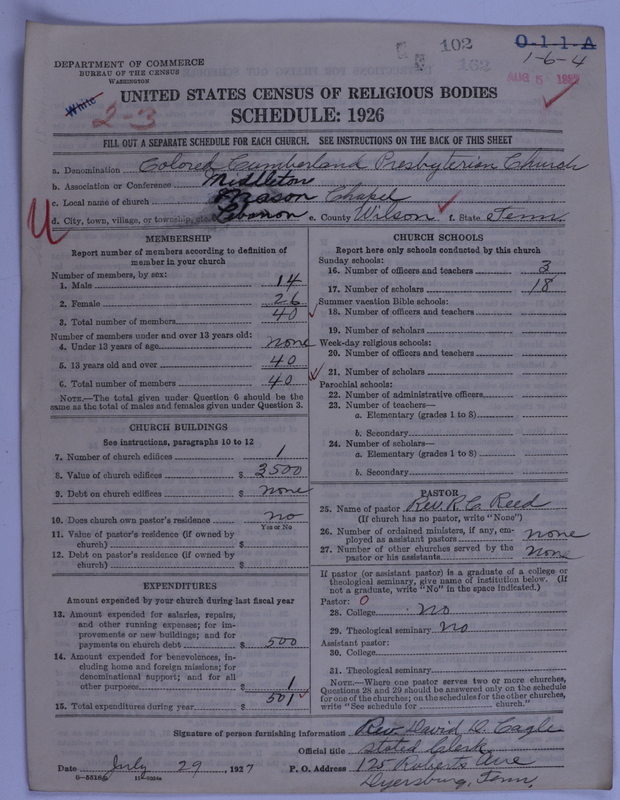 DEPARTMENT OF COMMERCE
BUREAU OF THE CENSUS
WASHINGTON
102
162
0-11-A
1-6-4
AUG 5
White
2-3
UNITED STATES CENSUS OF RELIGIOUS BODIES
SCHEDULE: 1926
FILL OUT A SEPARATE SCHEDULE FOR EACH CHURCH. SEE INSTRUCTIONS ON THE BACK OF THIS SHEET
a. Denomination Colored Cumberland Presbyterian Church
b. Association or Conference Middleton
c. Local name of church Mason Chapel
d. City, town, village, or township, etc. Lebanon e. County Wilson f. State Tenn.
MEMBERSHIP
Report number of members according to definition of
member in your church
Number of members, by sex:
1. Male 14
2. Female 26
3. Total number of members 40
Number of members under and over 13 years old:
4. Under 13 years of age none
5. 13 years old and over 40
6. Total number of members 40
NOTE.—The total given under Question 6 should be the
same as the total of males and females given under Question 3.
CHURCH BUILDINGS
See instructions, paragraphs 10 to 12
7. Number of church edifices 1
8. Value of church edifices $ 3500
9. Debt on church edifices $ none
10. Does church own pastor's residence no
Yes or No
11. Value of pastor's residence (if owned by
church) $
12. Debt on pastor's residence (if owned by
church) $
EXPENDITURES
Amount expended by your church during last fiscal year
13. Amount expended for salaries, repairs,
and other running expenses; for im-
provements or new buildings; and for
payments on church debt $ 500
14. Amount expended for benevolences, in-
cluding home and foreign missions; for
denominational support; and for all
other purposes $ 1
15. Total expenditures during year $ 501
CHURCH SCHOOLS
Report here only schools conducted by this church
Sunday schools:
16. Number of officers and teachers 3
17. Number of scholars 18
Summer vacation Bible schools:
18. Number of officers and teachers
19. Number of scholars
Week-day religious schools:
20. Number of officers and teachers
21. Number of scholars
Parochial schools:
22. Number of administrative officers
23. Number of teachers—
a. Elementary (grades 1 to 8)
b. Secondary
24. Number of scholars—
a. Elementary (grades 1 to 8)
b. Secondary
PASTOR
25. Name of pastor Rev. R. C. Reed
(If church has no pastor, write "None")
26. Number of ordained ministers, if any, em-
ployed as assistant pastors none
27. Number of other churches served by the
pastor or his assistants none
If pastor (or assistant pastor) is a graduate of a college or
theological seminary, give name of institution below. (If
not a graduate, write "No" in the space indicated.)
Pastor: 0
28. College no
29. Theological seminary no
Assistant pastor:
30. College
31. Theological seminary
NOTE.—Where one pastor serves two or more churches,
Questions 28 and 29 should be answered only on the schedule
for one of the churches; on the schedules for the other churches,
write "See schedule for church."
Signature of person furnishing information Rev. David D. Cagle
Official title Stated Clerk
Date July 29, 1927 P. O. Address 125 Roberts Ave
Dyersburg, Tenn.